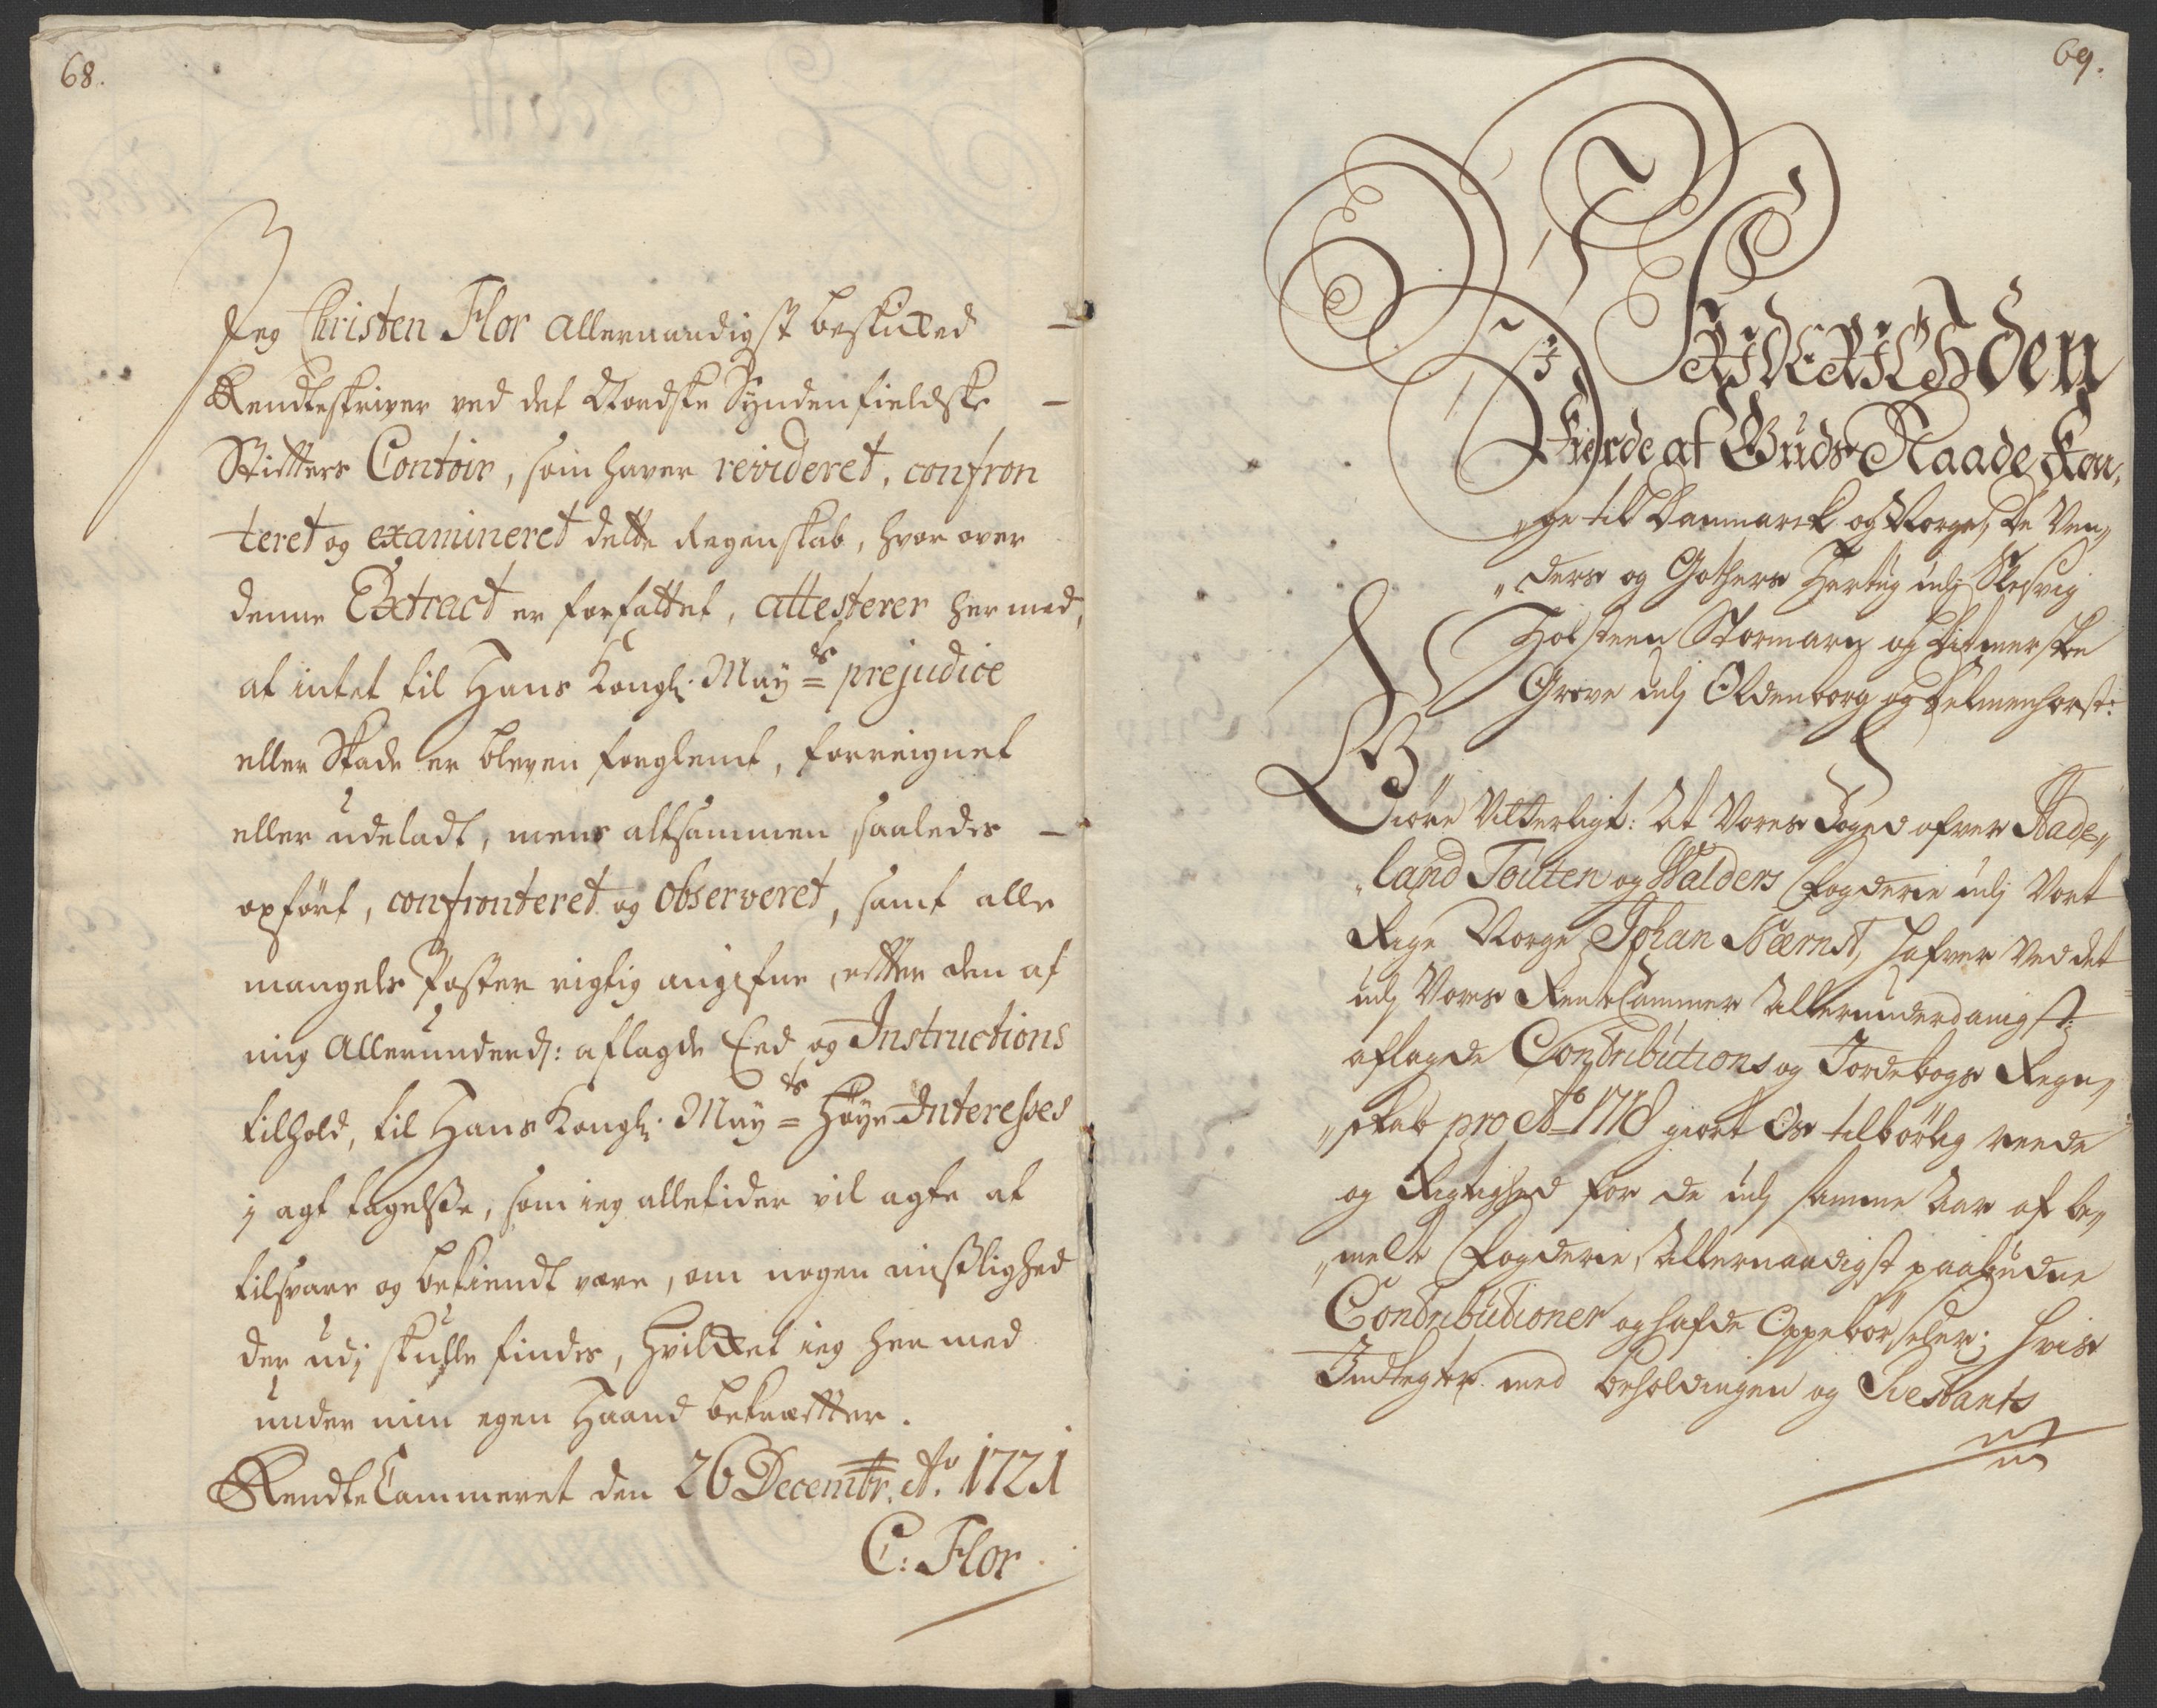 68.
Jeg Christen Flor allernaadigst beskikked
Rendteskriver ved det Nordske Syndenfieldske
Stifters Contoir, som haver revideret, confron
teret og examineret dette Regenskab, hvor over
denne Extract er forfattet, attesterer hermed,
at intet til Hans Kongl. May.ts prejudice
eller Skade er bleven forglemt, forreignet
eller udeladt, mens altsammen saaledes
opført, confronteret og observeret, samt alle
mangels Poster rigtig angifne, efter den af
mig Allerunderd: aflagde Eed og Instructions
tilhold, til Hans Kongl. May.ts Høye Interesses
j agt tagelsse, som ieg alletider vil agte at
tilsvare og bekiendt være, om nogen misslighed
der udj skulle findes, hvilket ieg her med
under min egen Haand bekræfter.
RendteCammeret den 26 Decembr. Ao. 1721
C: Flor
69.
FRIDERICH den
Fierde af Guds Naade Kon,
„ge till Danmarck og Norge, De Ven„
„ders og Gothers Hertug udj Slesvig
Holsteen Stormarn og Ditmersken
Greve udj Oldenborg og Delmenhorst:
Giøre Vitterligt: At Vores Foged ofver Hade„
„land Touten og Walders Fogderie udj Vort
Rige Norge, Johan Nærnst, hafver ved det
udj Vores RenteCammer Allerunderdanigst
aflagde Contributions og Jordebogs Regn„
„skab pro Ao 1718 giort Os tilbørlig reede
og Rigtighed for de udj samme Aar af be„
„melte Fogderie, Allernaadigst paabudne
Contributioner og hafde Oppebørseler; hvis
Indtegter med beholdningen og Restants